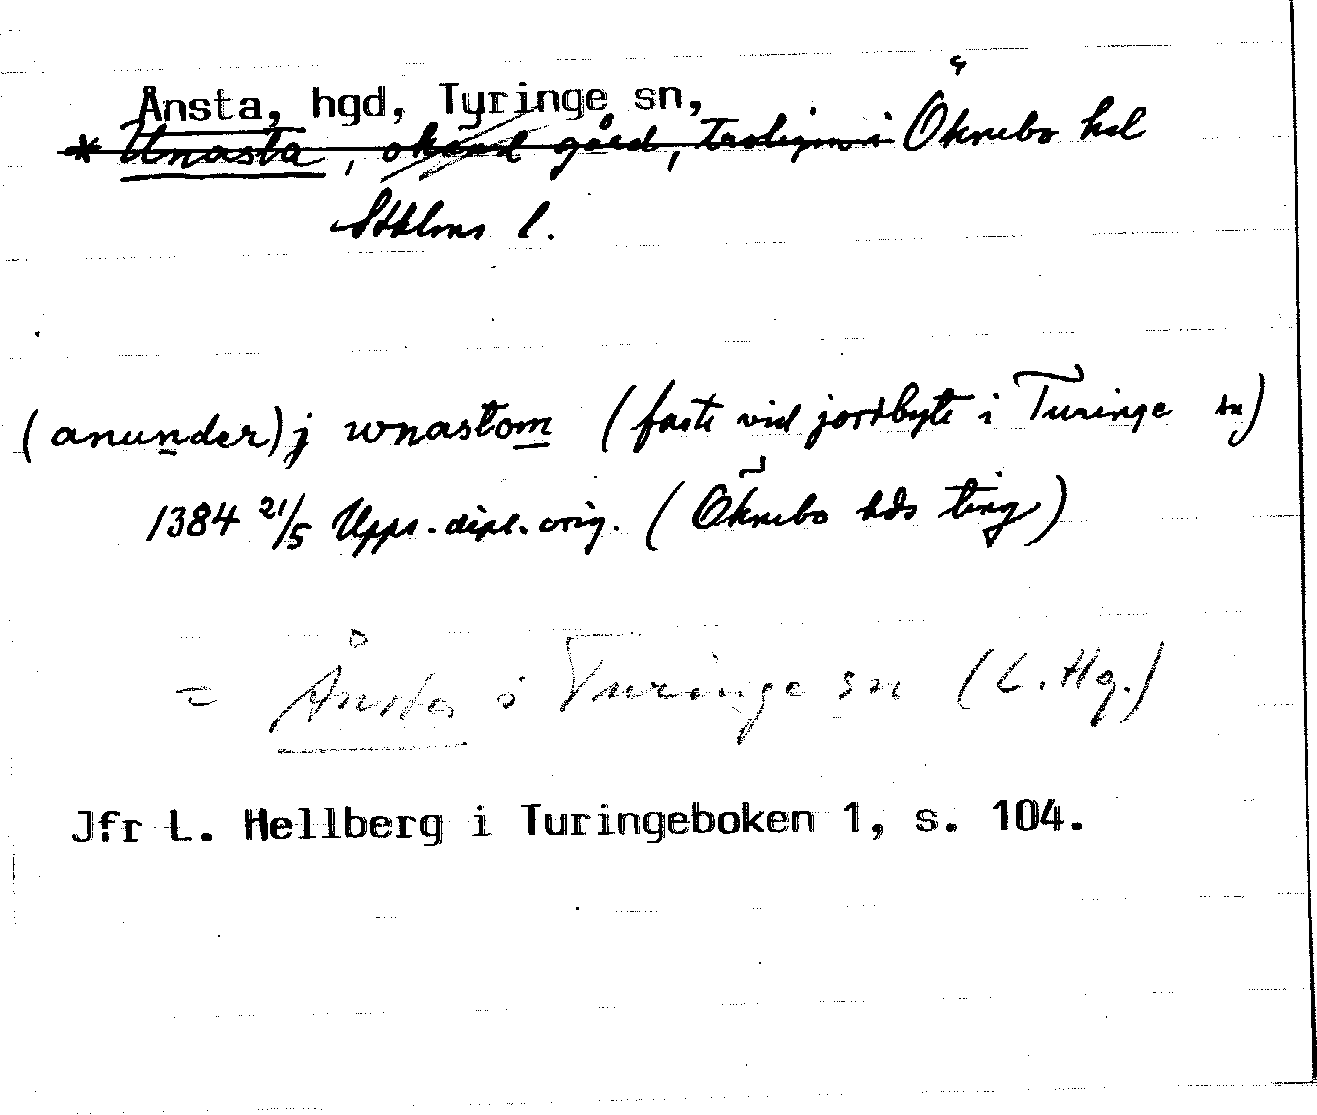 Ånsta, hgd, Tyringe sn,
* Unasta, okänd gård, troligen i Öknebo hd
Sthlms l.
(anunder) j wnastom (faste vid jordbyte i Turinge sn)
1384 21/5 Upps. dipl. orig. (Öknebo hds ting)
= Ånsta i Turinge sn (L. Hg.)
Jfr L. Hellberg i Turingeboken 1, s. 104.